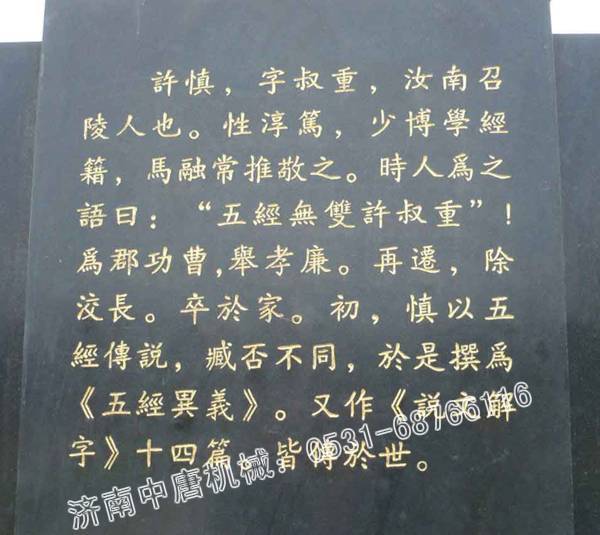 許慎，字叔重，汝南召
陵人也。性淳篤，少博學經
籍，馬融常推敬之。時人爲之
語曰：“五經無雙許叔重”！
爲郡功曹,舉孝廉。再遷，除
洨長。卒於家。初，慎以五
經傳説，臧否不同，於是撰爲
《五經異義》。又作《説文解
字》十四篇。皆傳於世。
济南中唐机械：0531-68766116